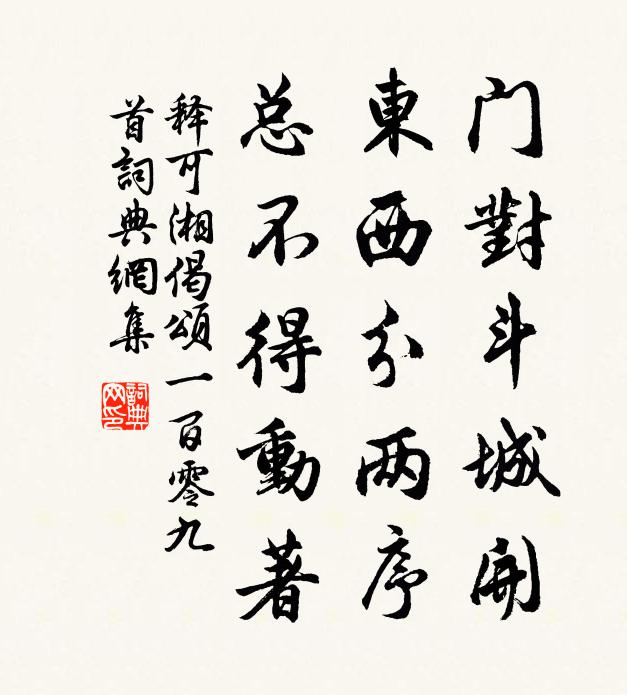 门對斗城開
東西分两序
总不得動著
释可湘偈頌一百零九
首詞典網集
詞典
网印